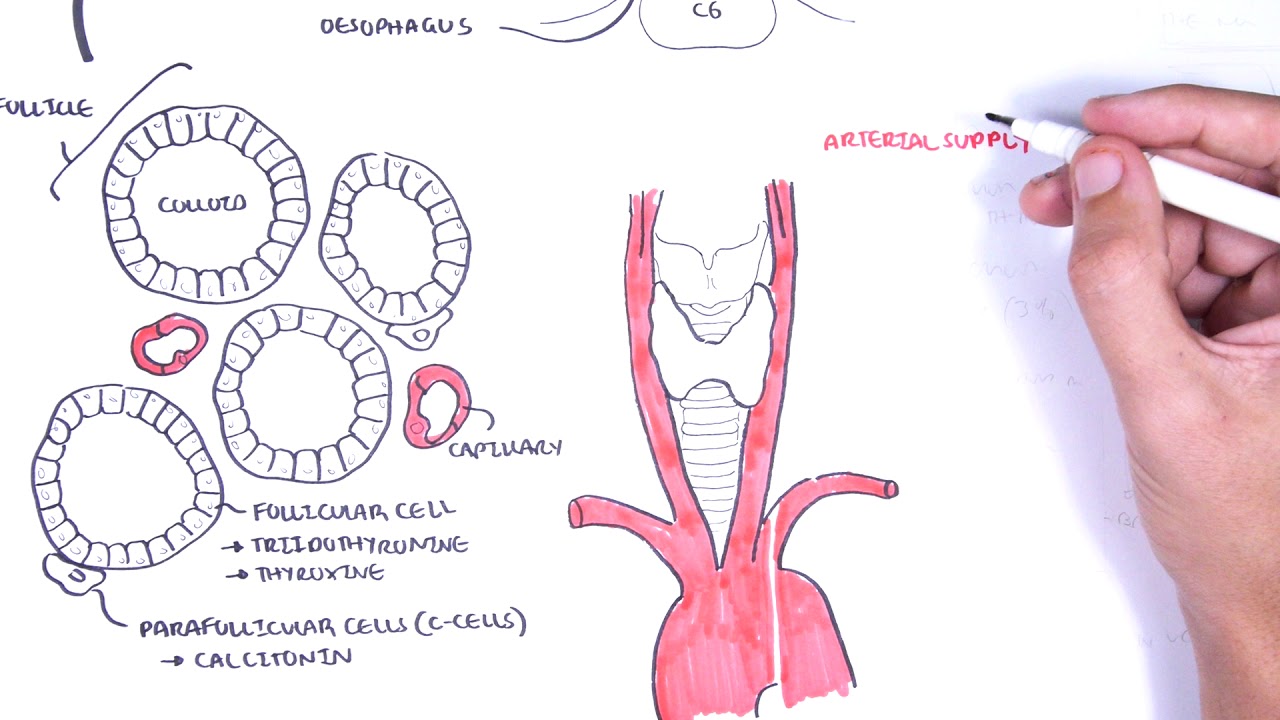 OESOPHAGUS
C6
FOLLICLE
COLLOID
ARTERIAL SUPPLY
CAPILLARY
FOLLICULAR CELL
→ TRIIDOTHYRONINE
→ THYROXINE
PARAFULLICULAR CELLS (C-CELLS)
→ CALCITONIN